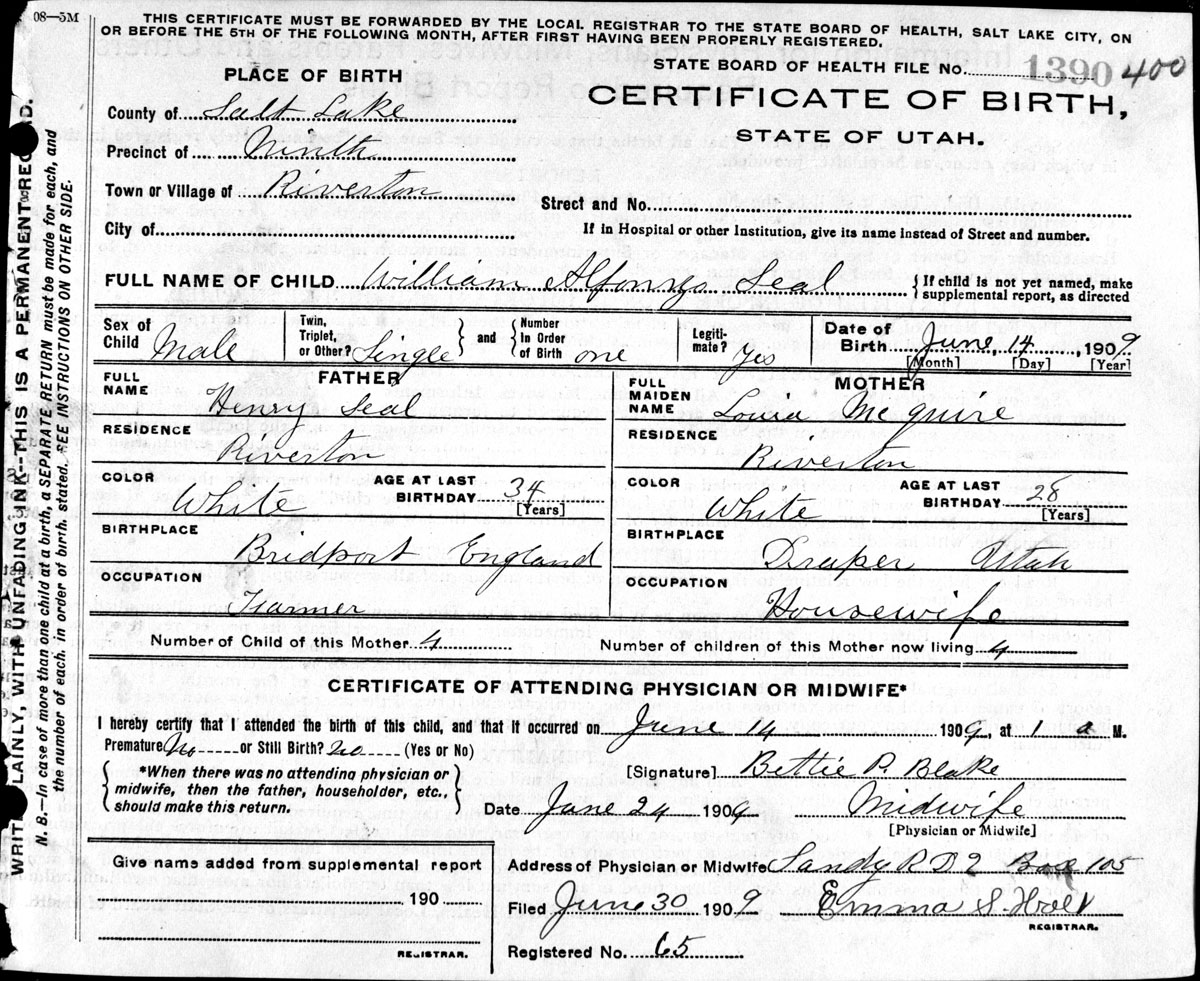 08—5M
THIS CERTIFICATE MUST BE FORWARDED BY THE LOCAL REGISTRAR TO THE STATE BOARD OF HEALTH, SALT LAKE CITY, ON
OR BEFORE THE 5TH OF THE FOLLOWING MONTH, AFTER FIRST HAVING BEEN PROPERLY REGISTERED.
STATE BOARD OF HEALTH FILE No. 1390 400
PLACE OF BIRTH
CERTIFICATE OF BIRTH,
STATE OF UTAH.
County of Salt Lake
Precinct of Ninth
Town or Village of Riverton
Street and No.
City of
If in Hospital or other Institution, give its name instead of Street and number.
FULL NAME OF CHILD William Alfonzo Seal { If child is not yet named, make
supplemental report, as directed
Sex of Child Male
Twin, Triplet, or Other? Single } and { Number In Order of Birth one
Legiti- mate? Yes
Date of Birth June 14, 1909
[Month] [Day] [Year]
FATHER
FULL NAME Henry Seal
RESIDENCE
Riverton
COLOR White AGE AT LAST BIRTHDAY 34
[Years]
BIRTHPLACE
Bridport England
OCCUPATION
Farmer
MOTHER
FULL MAIDEN NAME Louia McGuire
RESIDENCE
Riverton
COLOR White AGE AT LAST BIRTHDAY 28
[Years]
BIRTHPLACE
Draper Utah
OCCUPATION
Housewife
Number of Child of this Mother 4 Number of children of this Mother now living 4
CERTIFICATE OF ATTENDING PHYSICIAN OR MIDWIFE*
I hereby certify that I attended the birth of this child, and that it occurred on June 14 1909, at 1 a M.
Premature No or Still Birth? no (Yes or No)
{ *When there was no attending physician or
midwife, then the father, householder, etc.,
should make this return. }
[Signature] Bettie P. Blake
Date June 24 1909 Midwife
[Physician or Midwife]
Give name added from supplemental report
190
REGISTRAR.
Address of Physician or Midwife Sandy R D 2 Box 105
Filed June 30 1909 Emma S. Holt
REGISTRAR.
Registered No. 65
WRITE PLAINLY, WITH UNFADING INK—THIS IS A PERMANENT RECORD.
N. B.—In case of more than one child at a birth, a SEPARATE RETURN must be made for each, and
the number of each, in order of birth, stated. SEE INSTRUCTIONS ON OTHER SIDE.